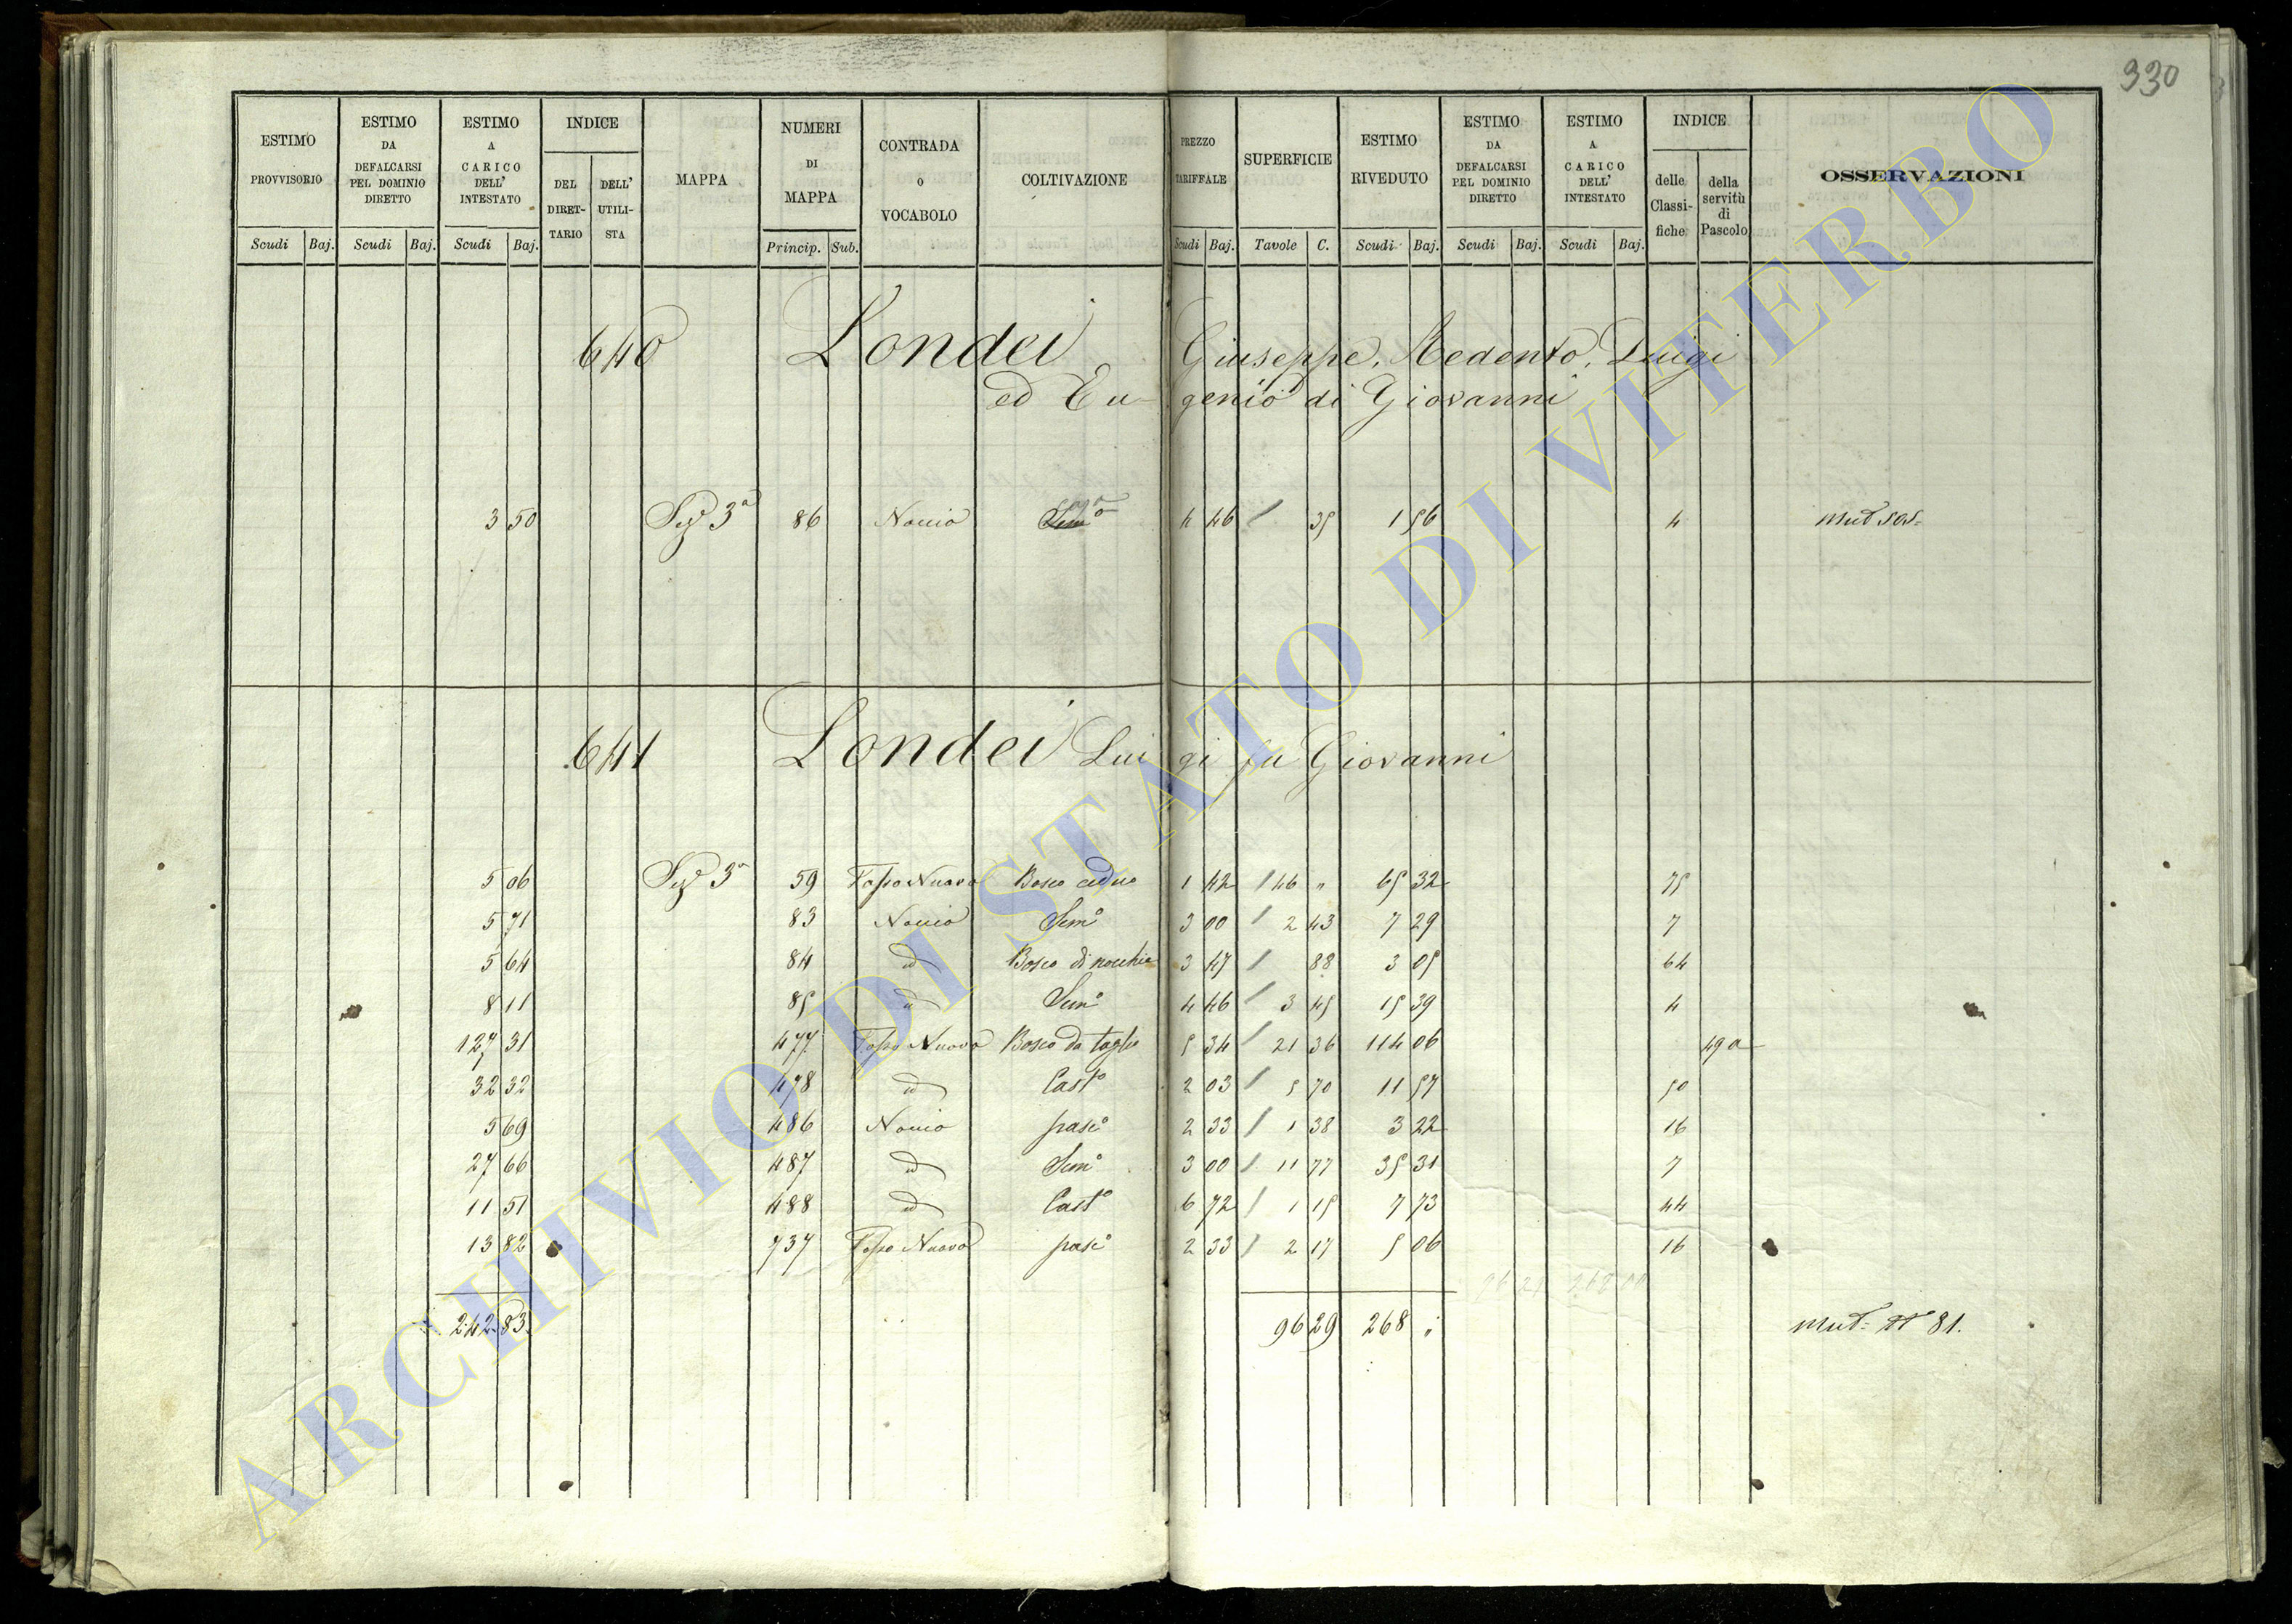 330
ESTIMO PROVVISORIO | ESTIMO DA DEFALCARSI PEL DOMINIO DIRETTO | ESTIMO A CARICO DELL' INTESTATO | INDICE | MAPPA | NUMERI DI MAPPA | CONTRADA O VOCABOLO | COLTIVAZIONE | PREZZO TARIFFALE | SUPERFICIE | ESTIMO RIVEDUTO | ESTIMO DA DEFALCARSI PEL DOMINIO DIRETTO | ESTIMO A CARICO DELL' INTESTATO | INDICE | OSSERVAZIONI
DEL DIRET-TARIO | DELL' UTILI-STA | delle Classi-fiche | della servitù di Pascolo
Scudi | Baj. | Scudi | Baj. | Scudi | Baj. | Princip. | Sub. | Scudi | Baj. | Tavole | C. | Scudi | Baj. | Scudi | Baj. | Scudi | Baj.
640 Londei Giuseppe, Redento, Luigi
ed Eugenio di Giovanni
3 50 Sez.e 3a 86 Sem.o 4 46 / 35 1 56 4
641 Londei Luigi fu Giovanni
5 06 Sez.e 3a 59 Fosso Nuovo Bosco ceduo 1 42 / 46 " 65 32 75
5 71 83 Sem.o 3 00 / 2 43 7 29 7
5 64 84 id Bosco di nocchie 3 47 / 88 3 05 64
8 11 85 id Sem.o 4 46 / 3 45 15 39 4
127 31 477 Fosso Nuovo Bosco da taglio 5 34 / 21 36 114 06 49 a
32 32 478 id Cast.o 2 03 / 5 70 11 57 50
5 69 486 pasc.o 2 33 / 1 38 3 22 16
27 66 487 id Sem.o 3 00 / 11 77 35 31 7
11 51 488 id Cast.o 6 72 / 1 15 7 73 44
13 82 737 Fosso Nuovo pasc.o 2 33 / 2 17 5 06 16
242 83 96 29 268 " Mut.e N 81.
ARCHIVIO DI STATO DI VITERBO